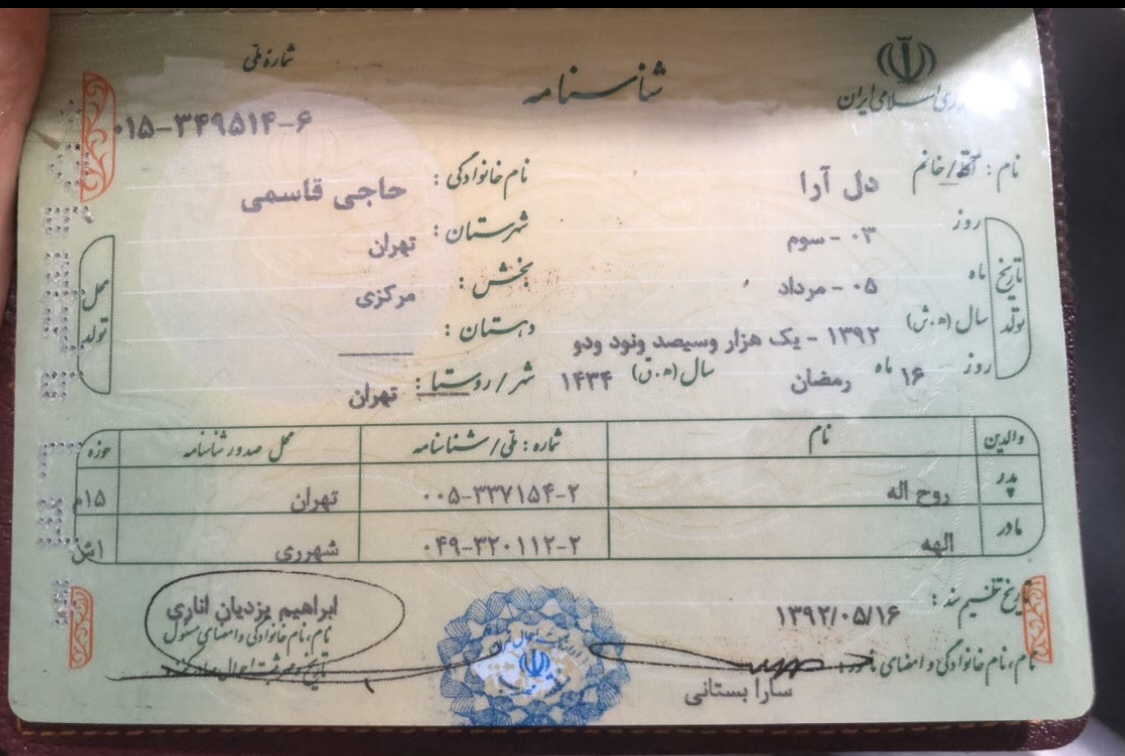 شماره ملی
شناسنامه
۰۱۵-۳۴۹۵۱۴-۶
نام : آقا/خانم دل آرا نام خانوادگی : حاجی قاسمی
تاریخ تولد
روز ۰۳ - سوم
ماه ۰۵ - مرداد
سال (ه.ش) ۱۳۹۲ - یک هزار وسیصد ونود ودو
روز ۱۶ ماه رمضان سال (ه.ق) ۱۴۳۴
محل تولد
شهرستان : تهران
بخش : مرکزی
دهستان :
شهر / روستا : تهران
والدین نام شماره : ملی / شناسنامه محل صدور شناسنامه حوزه
پدر روح اله ۰۰۵-۳۳۷۱۵۴-۲ تهران ۱۵م
مادر الهه ۰۴۹-۳۲۰۱۱۲-۲ شهرری ۱ش
تاریخ تنظیم سند : ۱۳۹۲/۰۵/۱۶
نام، نام خانوادگی و امضای مأمور :
سارا بستانی
ابراهیم یزدیان اناری
نام، نام خانوادگی و امضای مسئول